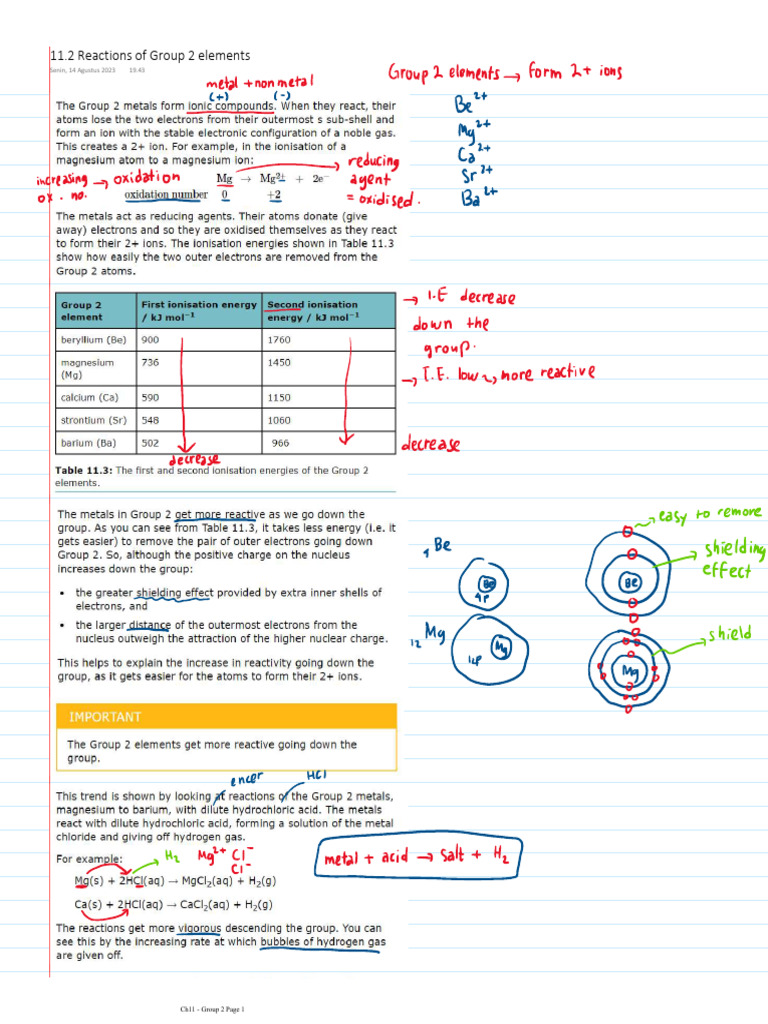 11.2 Reactions of Group 2 elements
Senin, 14 Agustus 2023 15:43
Group 2 elements → form 2+ ions
Be²⁺
Mg²⁺
Ca²⁺
Sr²⁺
Ba²⁺
metal + non metal
(+) (-)
The Group 2 metals form ionic compounds. When they react, their
atoms lose the two electrons from their outermost s sub-shell and
form an ion with the stable electronic configuration of a noble gas.
This creates a 2+ ion. For example, in the ionisation of a
magnesium atom to a magnesium ion:
increasing → oxidation
ox. no.
Mg → Mg²⁺ + 2e⁻
oxidation number 0 +2
reducing
agent
= oxidised.
The metals act as reducing agents. Their atoms donate (give
away) electrons and so they are oxidised themselves as they react
to form their 2+ ions. The ionisation energies shown in Table 11.3
show how easily the two outer electrons are removed from the
Group 2 atoms.
Group 2 element First ionisation energy / kJ mol⁻¹ Second ionisation energy / kJ mol⁻¹
beryllium (Be) 900 1760
magnesium (Mg) 736 1450
calcium (Ca) 590 1150
strontium (Sr) 548 1060
barium (Ba) 502 966
→ I.E decrease
down the
group.
→ I.E. low, more reactive
decrease
decrease
Table 11.3: The first and second ionisation energies of the Group 2
elements.
The metals in Group 2 get more reactive as we go down the
group. As you can see from Table 11.3, it takes less energy (i.e. it
gets easier) to remove the pair of outer electrons going down
Group 2. So, although the positive charge on the nucleus
increases down the group:
• the greater shielding effect provided by extra inner shells of
electrons, and
• the larger distance of the outermost electrons from the
nucleus outweigh the attraction of the higher nuclear charge.
This helps to explain the increase in reactivity going down the
group, as it gets easier for the atoms to form their 2+ ions.
₄Be
Be
4p
₁₂Mg
Mg
12p
easy to remove
shielding
effect
Be
shield
Mg
IMPORTANT
The Group 2 elements get more reactive going down the
group.
encer HCl
This trend is shown by looking at reactions of the Group 2 metals,
magnesium to barium, with dilute hydrochloric acid. The metals
react with dilute hydrochloric acid, forming a solution of the metal
chloride and giving off hydrogen gas.
For example:
H₂ Mg²⁺ Cl⁻
Cl⁻
metal + acid → salt + H₂
Mg(s) + 2HCl(aq) → MgCl₂(aq) + H₂(g)
Ca(s) + 2HCl(aq) → CaCl₂(aq) + H₂(g)
The reactions get more vigorous descending the group. You can
see this by the increasing rate at which bubbles of hydrogen gas
are given off.
Ch11 - Group 2 Page 1